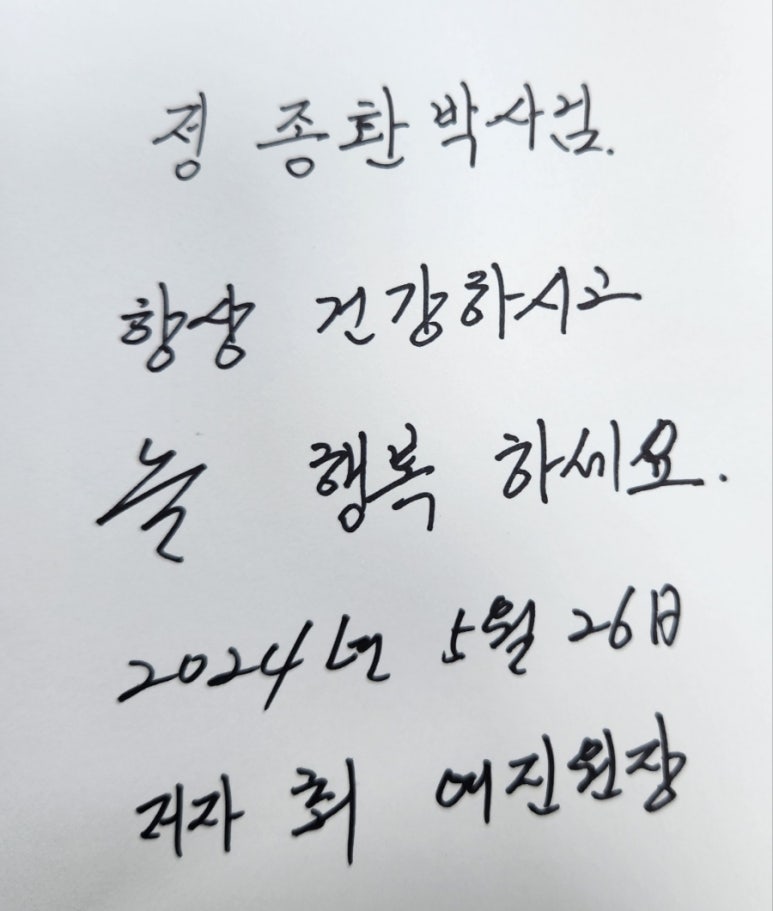 정 종환 박사님.
항상 건강하시고
늘 행복 하세요.
2024년 5월 26日
저자 최 여진 원장